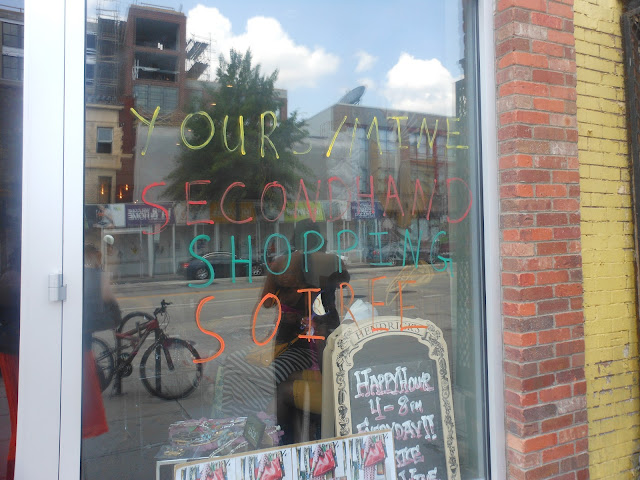 YOURS/MINE
SECONDHAND
SHOPPING
SOIREE
HENDRICK'S
HAPPY HOUR
4-8 PM
EVERYDAY!!